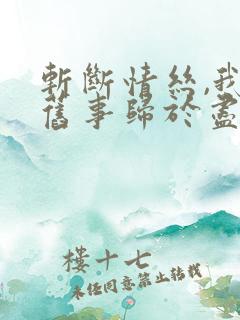 斬斷情絲,我
舊事歸於盡
樓十七
未任同意禁止轉載